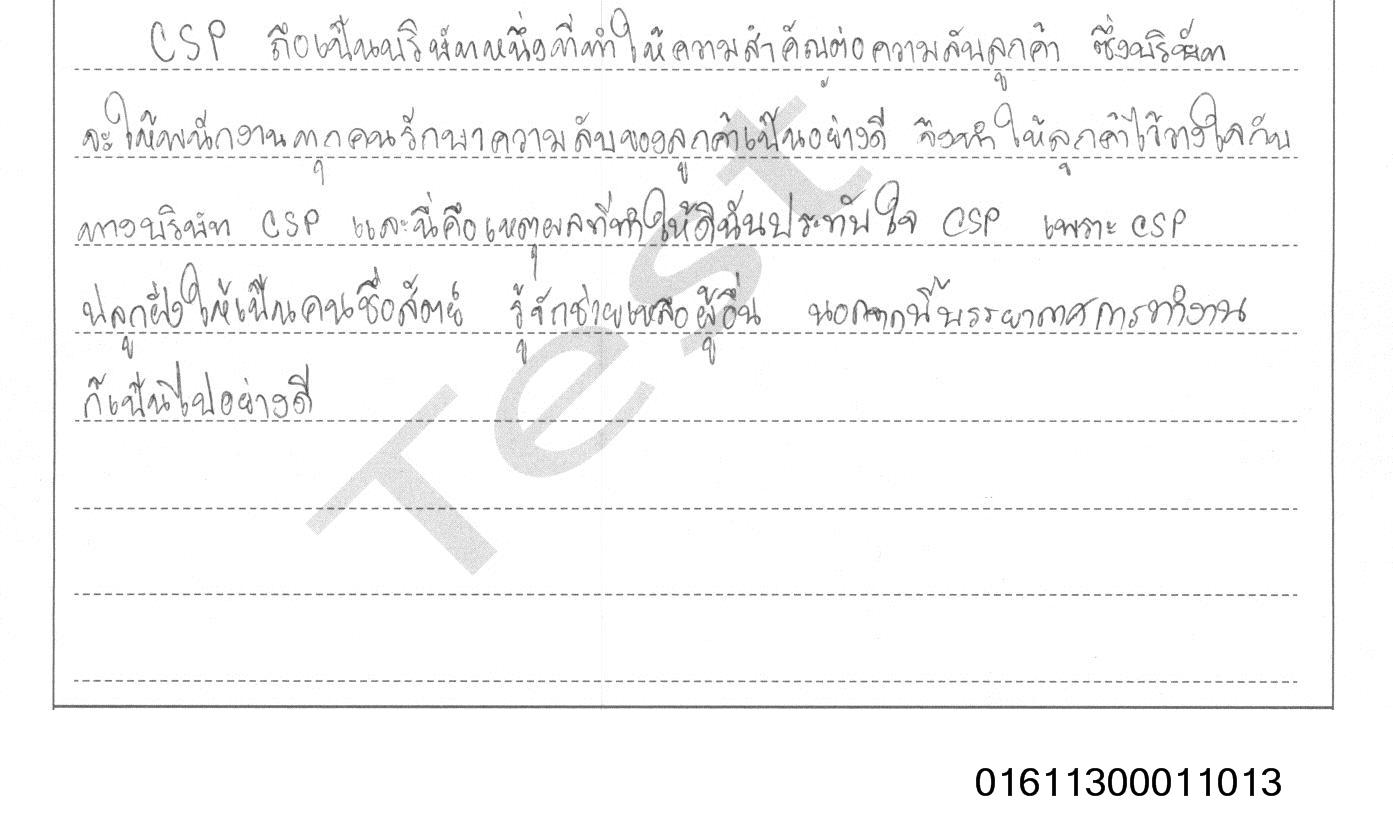 CSP ถือเป็นบริษัทหนึ่งที่ทำให้ความสำคัญต่อความลับลูกค้า ซึ่งบริษัท
จะให้พนักงานทุกคนรักษาความลับของลูกค้าเป็นอย่างดี จึงทำให้ลูกค้าไว้วางใจกับ
ทางบริษัท CSP และนี่คือเหตุผลที่ทำให้ดิฉันประทับใจ CSP เพราะ CSP
ปลูกฝังให้เป็นคนซื่อสัตย์ รู้จักช่วยเหลือผู้อื่น นอกจากนี้บรรยากาศการทำงาน
ก็เป็นไปอย่างดี
Test
01611300011013